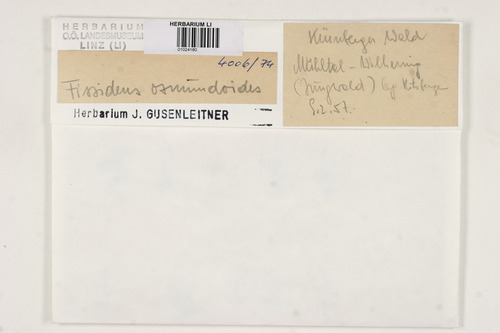 HERBARIUM
O.Ö. LANDESMUSEUM
LINZ (LI)
HERBARIUM LI
01024160
4006/74
Fissidens osmundoides
Herbarium J. GUSENLEITNER
Kürnberger Wald
Mühltal-Wilhering
(Jungwald) leg.
5.2.57.